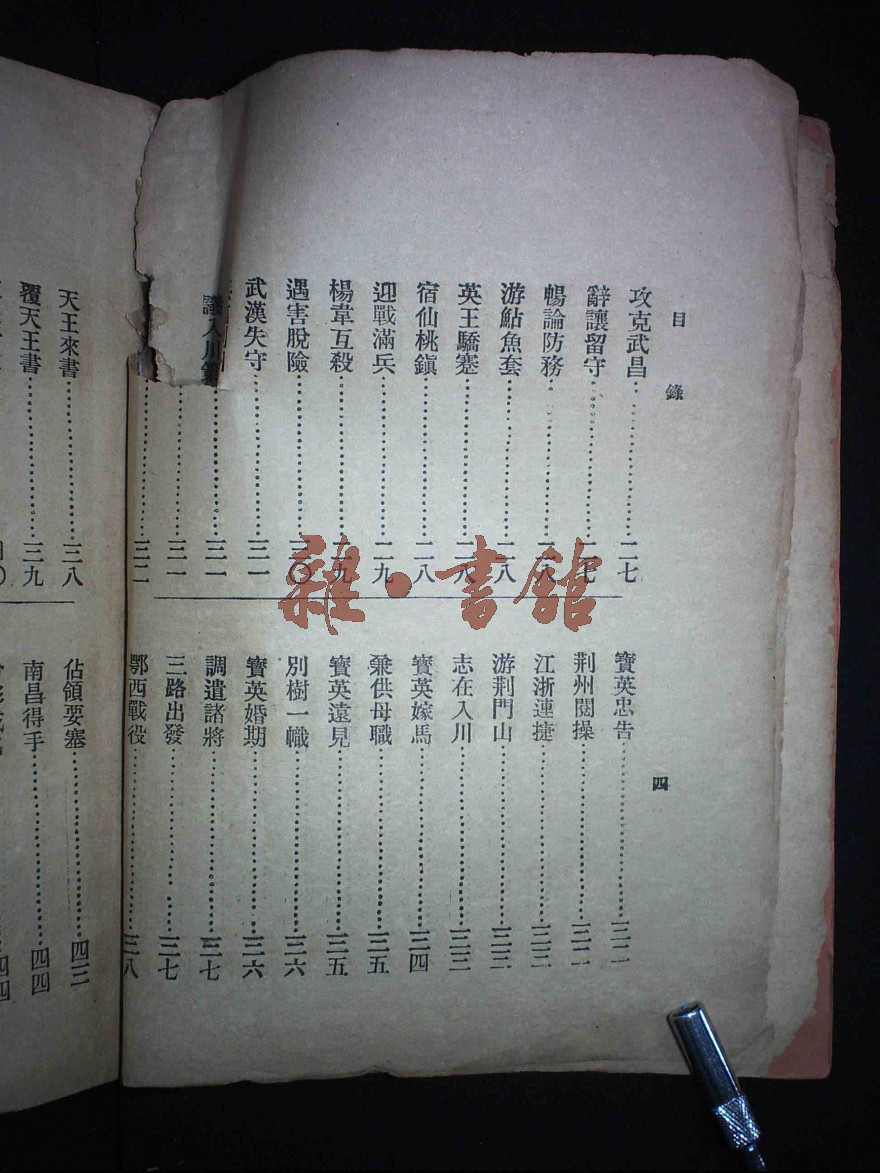 目錄
四
攻克武昌 二七
辭讓留守 二七
暢論防務 二八
游鮎魚套 二八
英王驕蹇 二八
宿仙桃鎭 二八
迎戰滿兵 二九
楊韋互殺 二九
遇害脫險 三〇
武漢失守 三一
議入川 三一
三一
三二
寶英忠告 三二
荆州閱操 三二
江浙連捷 三三
游荆門山 三三
志在入川 三三
寶英嫁馬 三四
兼供母職 三五
寶英遠見 三五
別樹一幟 三六
寶英婚期 三六
調遣諸將 三七
三路出發 三七
鄂西戰役 三八
天王來書 三八
覆天王書 三九
佔領要塞 四三
南昌得手 四四
四四
雜·書館